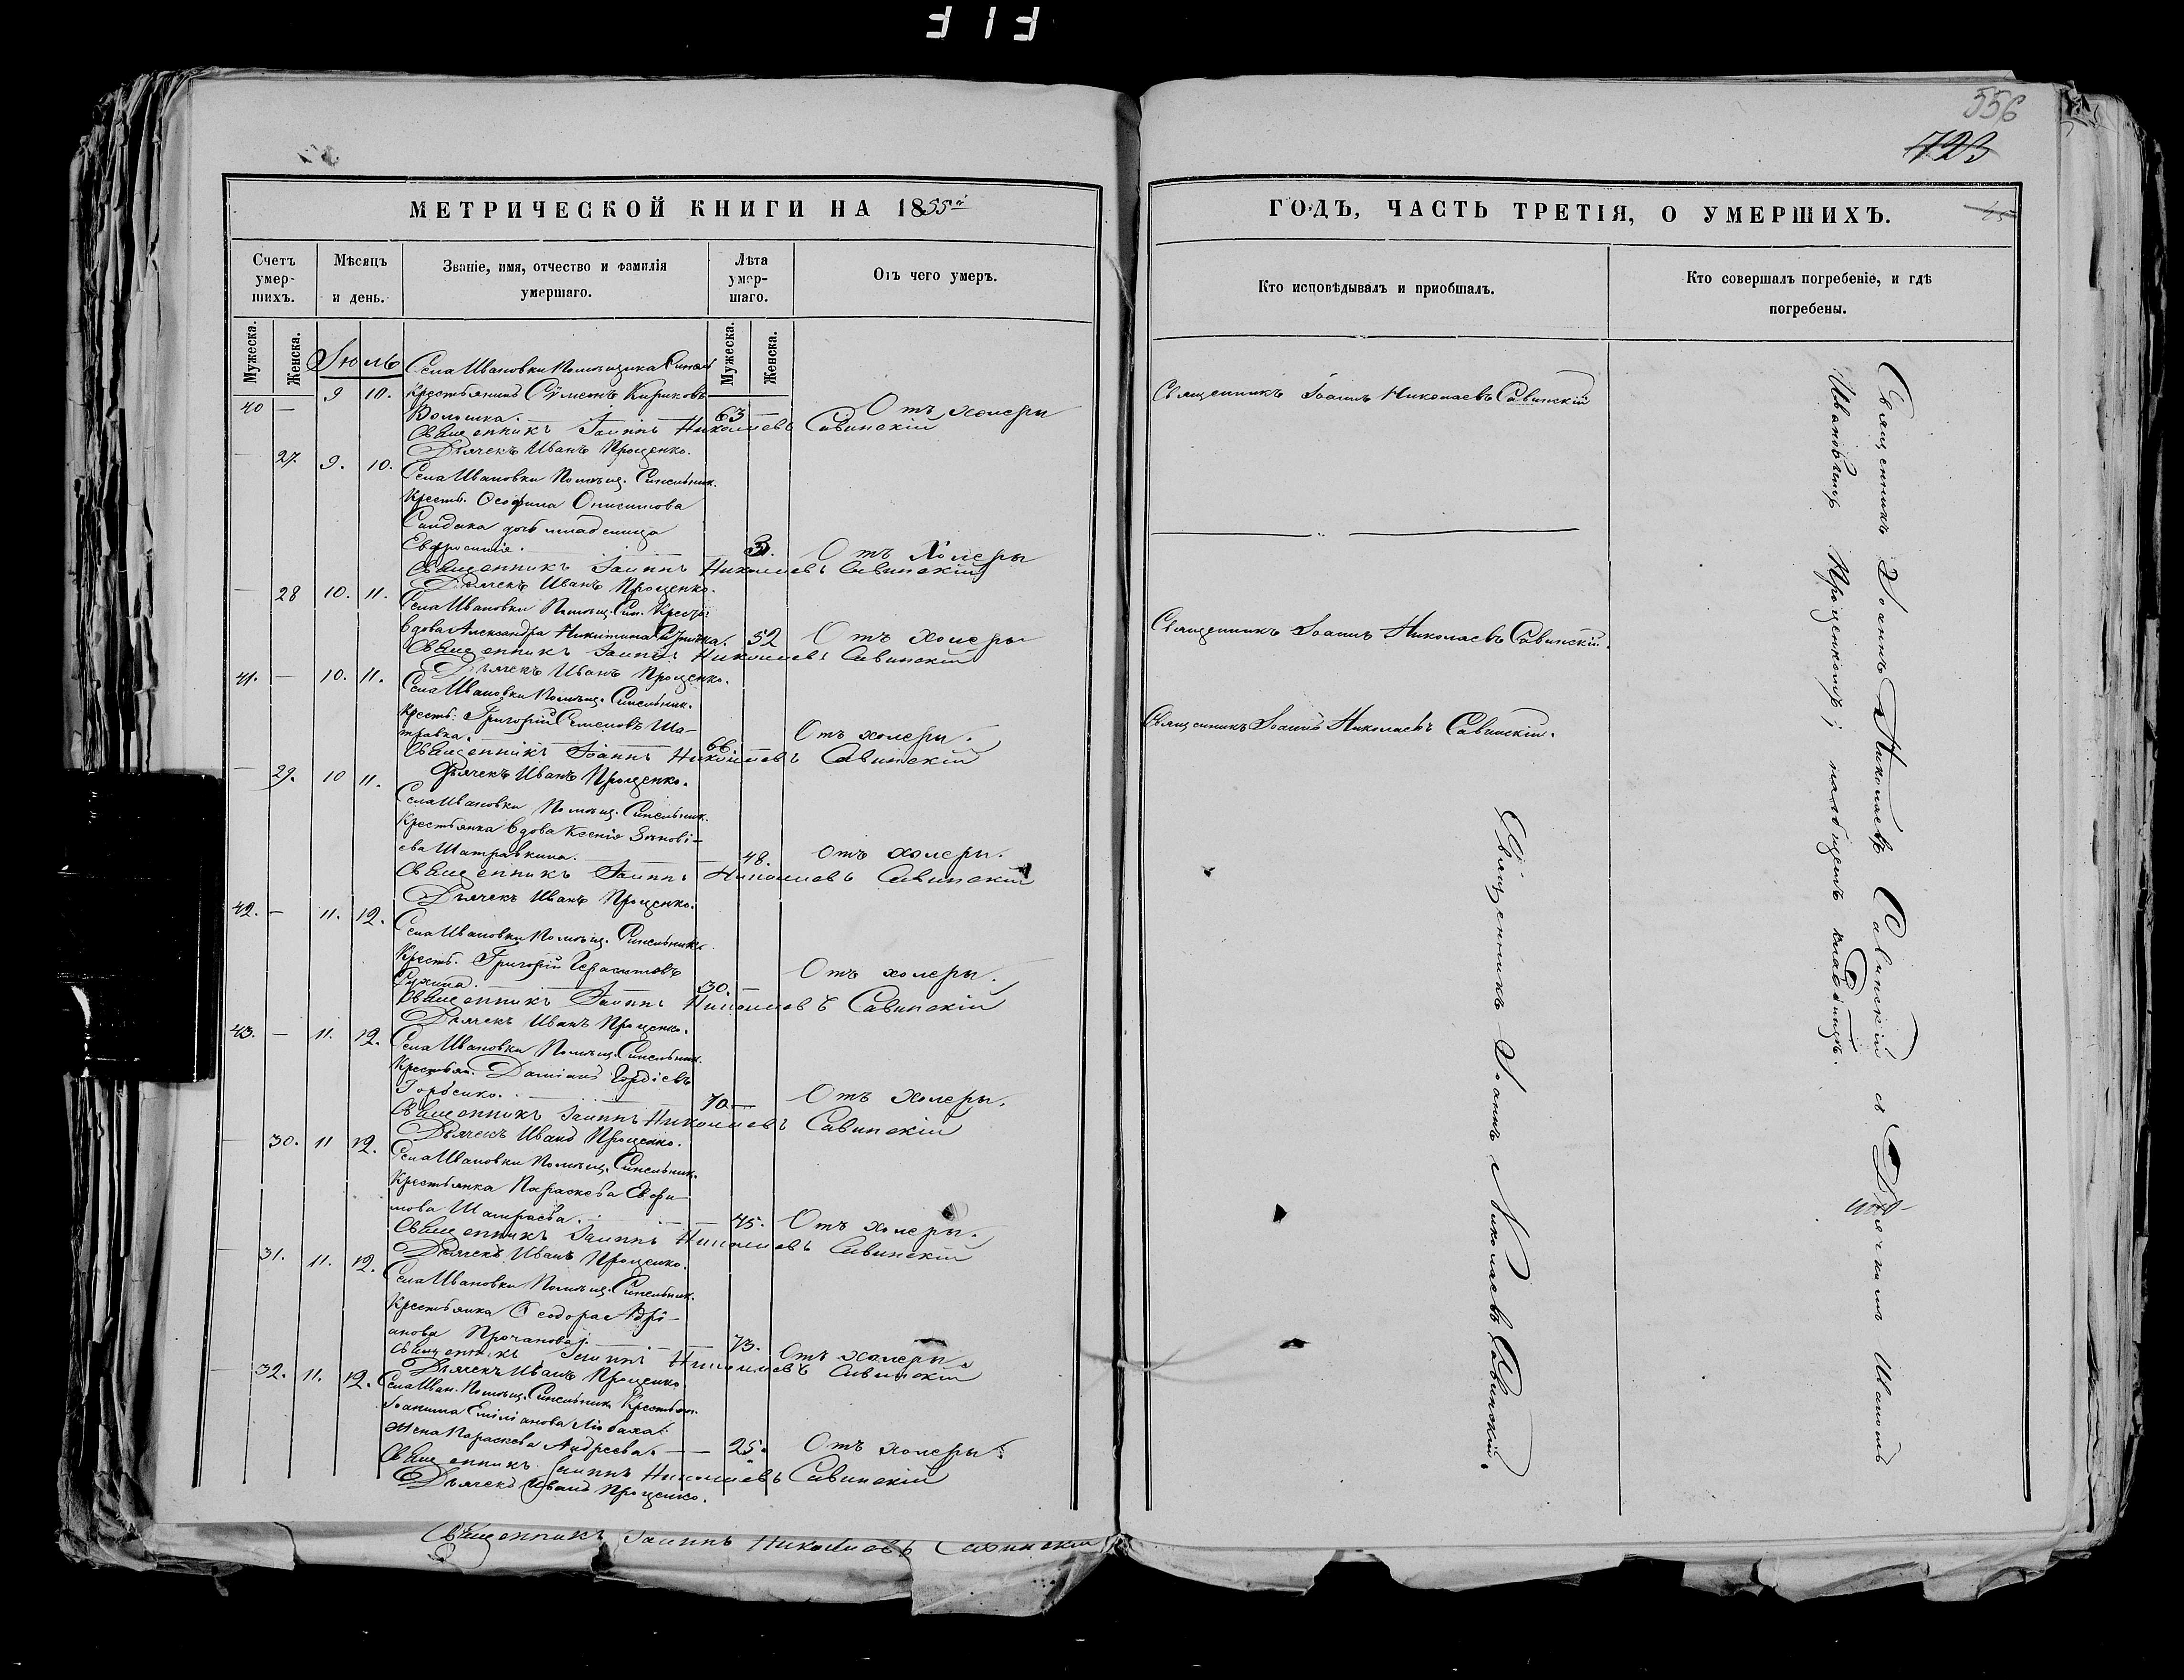 556
723
МЕТРИЧЕСКОЙ КНИГИ НА 1855й
Счетъ умер-шихъ.
Мѣсяцъ и день.
Званіе, имя, отчество и фамилія умершаго.
Лѣта умер-шаго.
Отъ чего умеръ.
Мужеска.
Женска.
Мужеска.
Женска.
Іюль
Села Ивановки Помѣщика Синел
40 — 9 10. Крестьянинъ Сѵмеонъ Кириковъ
Волошка. 63 — Отъ холеры
Священникъ Іоаннъ Николаевъ Савинскій
Дьячекъ Иванъ Проценко.
— 27. 9. 10. Села Ивановки Помѣщ. Синельник.
Крестьян. Онисимова
дочь младеница
Евфросинія. 3. Отъ Холеры
Священникъ Іоаннъ Николаевъ Савинскій
Дьячекъ Иванъ Проценко.
— 28 10. 11. Села Ивановки Помѣщ. Син. Крест.
вдова Александра Никитина 52 Отъ холеры
Священникъ Іоаннъ Николаевъ Савинскій
Дьячекъ Иванъ Проценко.
41. — 10. 11. Села Ивановки Помѣщ. Синельник.
Крестъ. Григорій Семеновъ Ша-
травка. 66. Отъ холеры.
Священникъ Іоаннъ Николаевъ Савинскій
Дьячекъ Иванъ Проценко.
— 29. 10 11. Села Ивановки Помѣщ. Синельник.
Крестьянка вдова Ксенія Зѣнові-
ева Шатравкина. 48. Отъ холеры.
Священникъ Іоаннъ Николаевъ Савинскій
Дьячекъ Иванъ Проценко.
42. — 11. 12. Села Ивановки Помѣщ. Синельник.
Крестъ. Григорій Герасимовъ
30. — Отъ холеры.
Священникъ Іоаннъ Николаевъ Савинскій
Дьячекъ Иванъ Проценко.
43. — 11. 12. Села Ивановки Помѣщ. Синельник.
Крестьян. Даміанъ Гордіевъ
Горбенко. 70 — Отъ холеры.
Священникъ Іоаннъ Николаевъ Савинскій
Дьячекъ Иванъ Проценко.
— 30. 11 12. Села Ивановки Помѣщ. Синельник.
Крестьянка Параскева Евфи-
мова 45. Отъ холеры.
Священникъ Іоаннъ Николаевъ Савинскій
Дьячекъ Иванъ Проценко.
— 31. 11. 12. Села Ивановки Помѣщ. Синельник.
Крестьянка Ѳеодора Адрі-
анова 73. Отъ холеры.
Священникъ Іоаннъ Николаевъ Савинскій
Дьячекъ Иванъ Проценко
— 32. 11. 12. Села Иван. Помѣщ. Синельник. Крестьян.
Іоакима Емиліанова
жена Параскева Андреева. — 25. Отъ холеры.
Священникъ Іоаннъ Николаевъ Савинскій
Дьячекъ Иванъ Проценко.
Священникъ Іоаннъ Николаевъ Савинскій
ГОДЪ, ЧАСТЬ ТРЕТІЯ, О УМЕРШИХЪ.
Кто исповѣдывалъ и пріобщалъ.
Кто совершалъ погребеніе, и гдѣ погребены.
Священникъ Іоаннъ Николаевъ Савинскій
Священникъ Іоаннъ Николаевъ Савинскій.
Священникъ Іоаннъ Николаевъ Савинскій.
Священникъ Іоаннъ Николаевъ Савинскій.
Священникъ Іоаннъ Николаевъ Савинскій съ Дьячкомъ Иваномъ
Ивановичемъ Проценкомъ; на общемъ кладбищѣ.